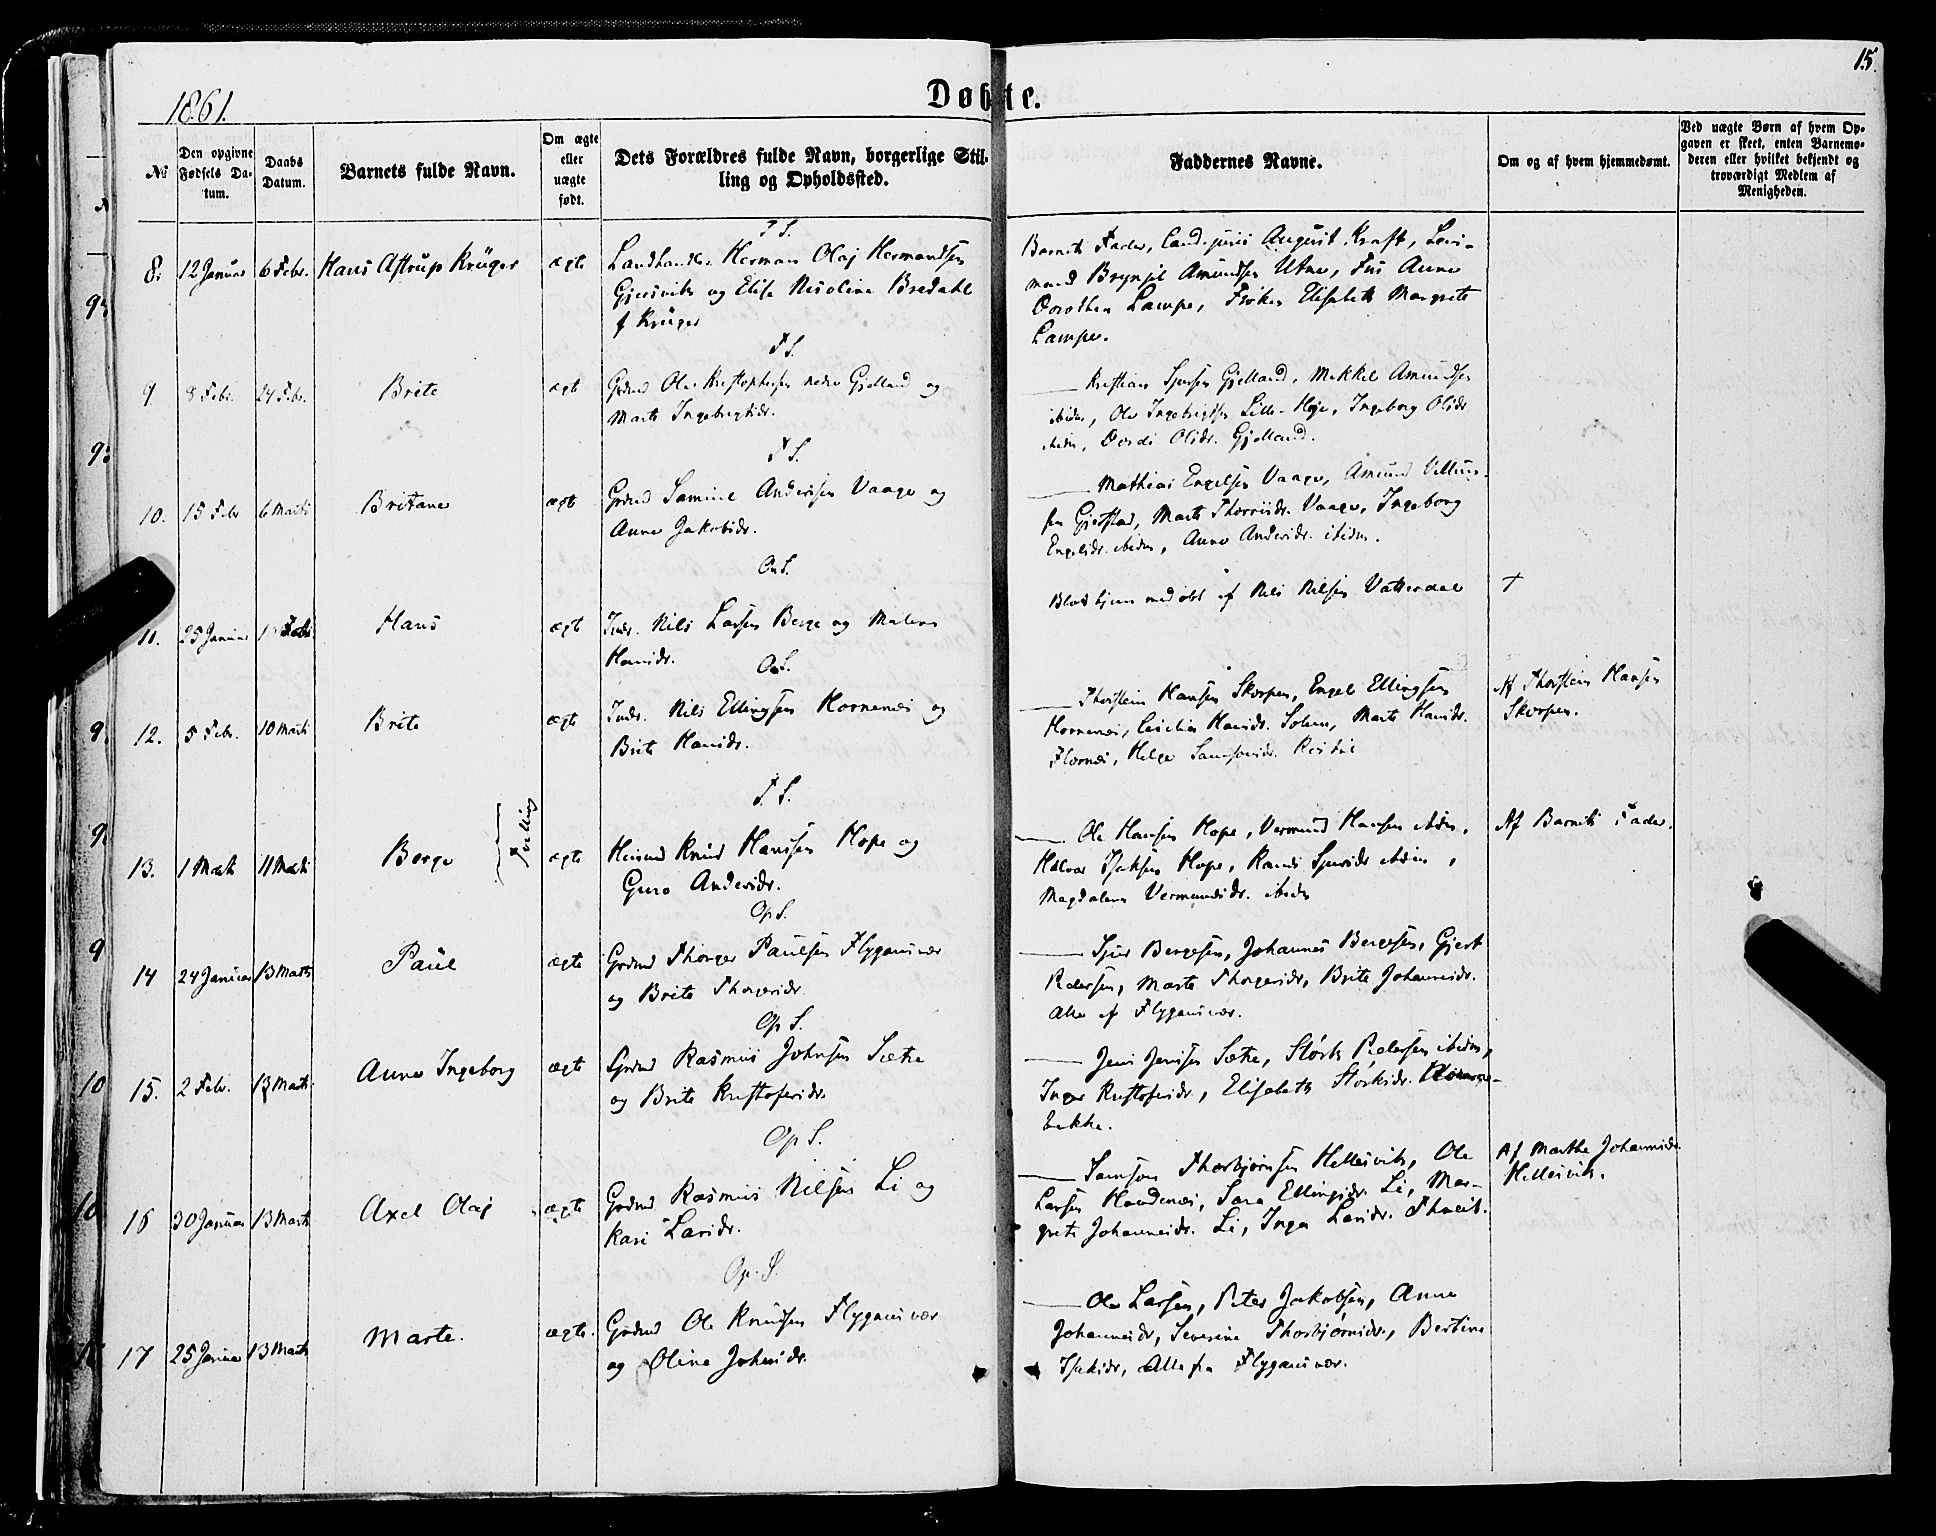 15.
1861.
Døbte.
No
Den opgivne Fødsels Datum.
Daabs Datum.
Barnets fulde Navn.
Om ægte eller uægte født.
Dets Forældres fulde Navn, borgerlige Stilling og Opholdssted.
Faddernes Navne.
Om og af hvem hjemmedømt.
Ved uægte Børn af hvem Opgaven er skeet, enten Barnemoderen eller hvilket bekjendt og troværdigt Medlem af Menigheden.
8. 12 Januar 6 Febr. Hans Astrup Krüger ægte
Landhandler Herman Olaj Hermandsen
Gjersvik og Elise Nicoline Bredahl
f Krüger
Barnets Fader, Cand. juris August Kraft,
Brynjel Amundsen Utne, Anne
Dorothea Lampe, Frøken Elisabeth Margrete
Lampe.
F S.
9 8 Febr. 24 Febr. Brite ægte
Grdmd Ole Kristophersen nedre Gjelland og
Marte Ingebrigtsdr.
Kristian Sjursen Gjelland, Mikkel Amundsen
ibidem, Ole Ingebrigtsen Lille-Høje, Ingeborg Olsdr
ibidm, Olsdr. Gjelland.
F S.
10. 15 Febr 6 Marts Britane ægte
Grdmd Andersen Vaage og
Anne Jakobsdr.
Mathias Engelsen Vaage, Amund
Gjerstad, Marte Vaage, Ingeborg
Engelsdr. ibidm, Anne Andersdr. ibidm.
OnS.
11. 25 Januar Febr Hans ægte
Indr. Nils Larsen Berge og Malene
Hansdr.
Blot hjemmedøbt af Nils Nilsen Vatterdal +
OnS.
12. 5 Febr. 10 Marts Brite ægte
Indr. Nils Ellingsen Hornenæs og
Brite Hansdr.
Thorstein Hansen Skorpen, Engel Ellingsen
Hornenæs, Hansdr. Marte Hansdr.
Helge Samsonsdr.
Af Thorstein Hansen
Skorpen.
F S.
13. 1 Marts 11 Marts Berge Tvilling ægte
Knud Hansen Hope og
Guro Andersdr.
Ole Hansen Hope, Vermund Hansen ibidm,
Halvor Isaksen Hope, Randi Sjursdr ibidm,
Magdalene Vermundsdr. ibidm
Af Barnets Fader.
Op S.
14 24 Januar 13 Marts Paul ægte
Grdmd Thorger Paulsen Flygansvær
og Brite Thorgersdr.
Sjur Bergesen, Johannes Bergesen, Gjert
Pedersen, Marte Thorgersdr, Brite Johannesdr.
Alle af Flygansvær.
Op S.
15. 2 Febr. 13 Marts Anne Ingeborg ægte
Grdmd Rasmus Johnsen Sætre
og Brite Kristofersdr.
Jens Jensen Sætre, Størk Pedersen ibidm,
Inger Kristofersdr, Elisabeth Størksdr.
bakke.
Op S.
16 30 Januar 13 Marts Axel Olaj ægte
Grdmd Rasmus Nilsen Li og
Kari Larsdr.
Samson Thorbjørnsen Hellesvik, Ole
Larsen Handenæs, Sara Ellingsdr. Li, Mar-
grete Johannesdr. Li, Inga Larsdr.
Af Marthe Johannesdr
Hellesvik.
Op. S.
17 25 Januar 13 Marts Marte. ægte.
Grdmd Ole Knudsen Flygansvær
og Oline Johnsdr.
Ole Larsen, Peter Jakobsen, Anne
Johannesdr, Severine Thorbjørnsdr, Bertine
Isaksdr, Alle fra Flygansvær.